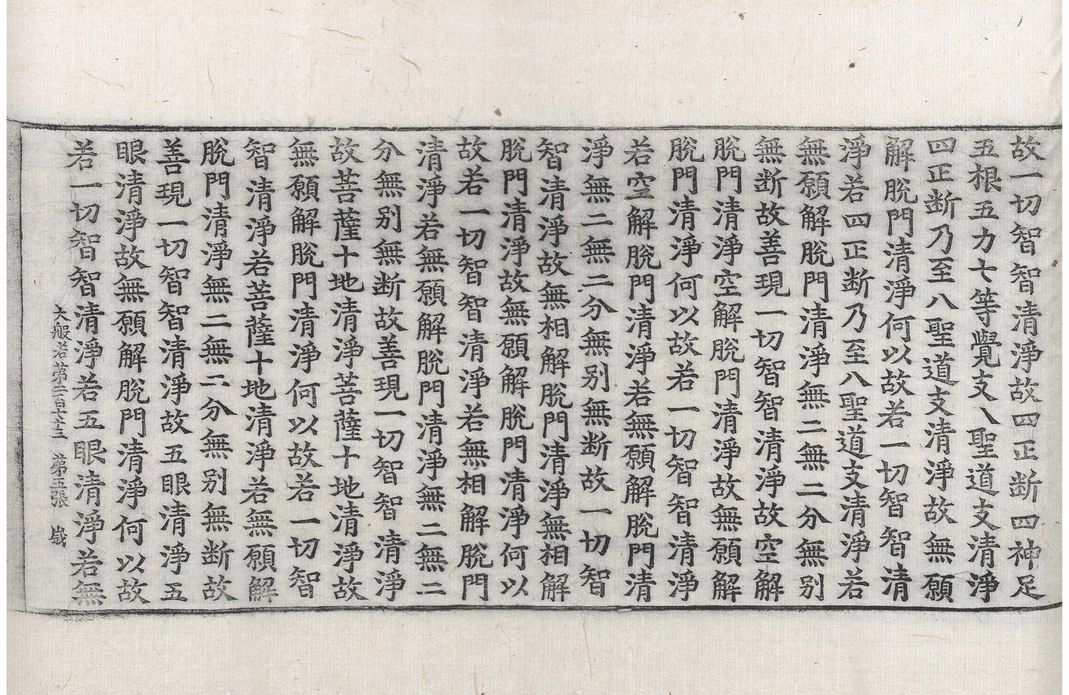 故一切智智清淨故四正断四神足
五根五力七等覺支八聖道支清淨
四正断乃至八聖道支清淨故無願
解脫門清淨何以故若一切智智清
淨若四正断乃至八聖道支清淨若
無願解脫門清淨無二無二分無别
無断故善現一切智智清淨故空解
脫門清淨空解脫門清淨故無願解
脫門清淨何以故若一切智智清淨
若空解脫門清淨若無願解脫門清
淨無二無二分無别無断故一切智
智清淨故無相解脫門清淨無相解
脫門清淨故無願解脫門清淨何以
故若一切智智清淨若無相解脫門
清淨若無願解脫門清淨無二無二
分無别無断故善現一切智智清淨
故菩薩十地清淨菩薩十地清淨故
無願解脫門清淨何以故若一切智
智清淨若菩薩十地清淨若無願解
脫門清淨無二無二分無别無断故
善現一切智智清淨故五眼清淨五
眼清淨故無願解脫門清淨何以故
若一切智智清淨若五眼清淨若無
大般若第二百六十三 第五張 歲